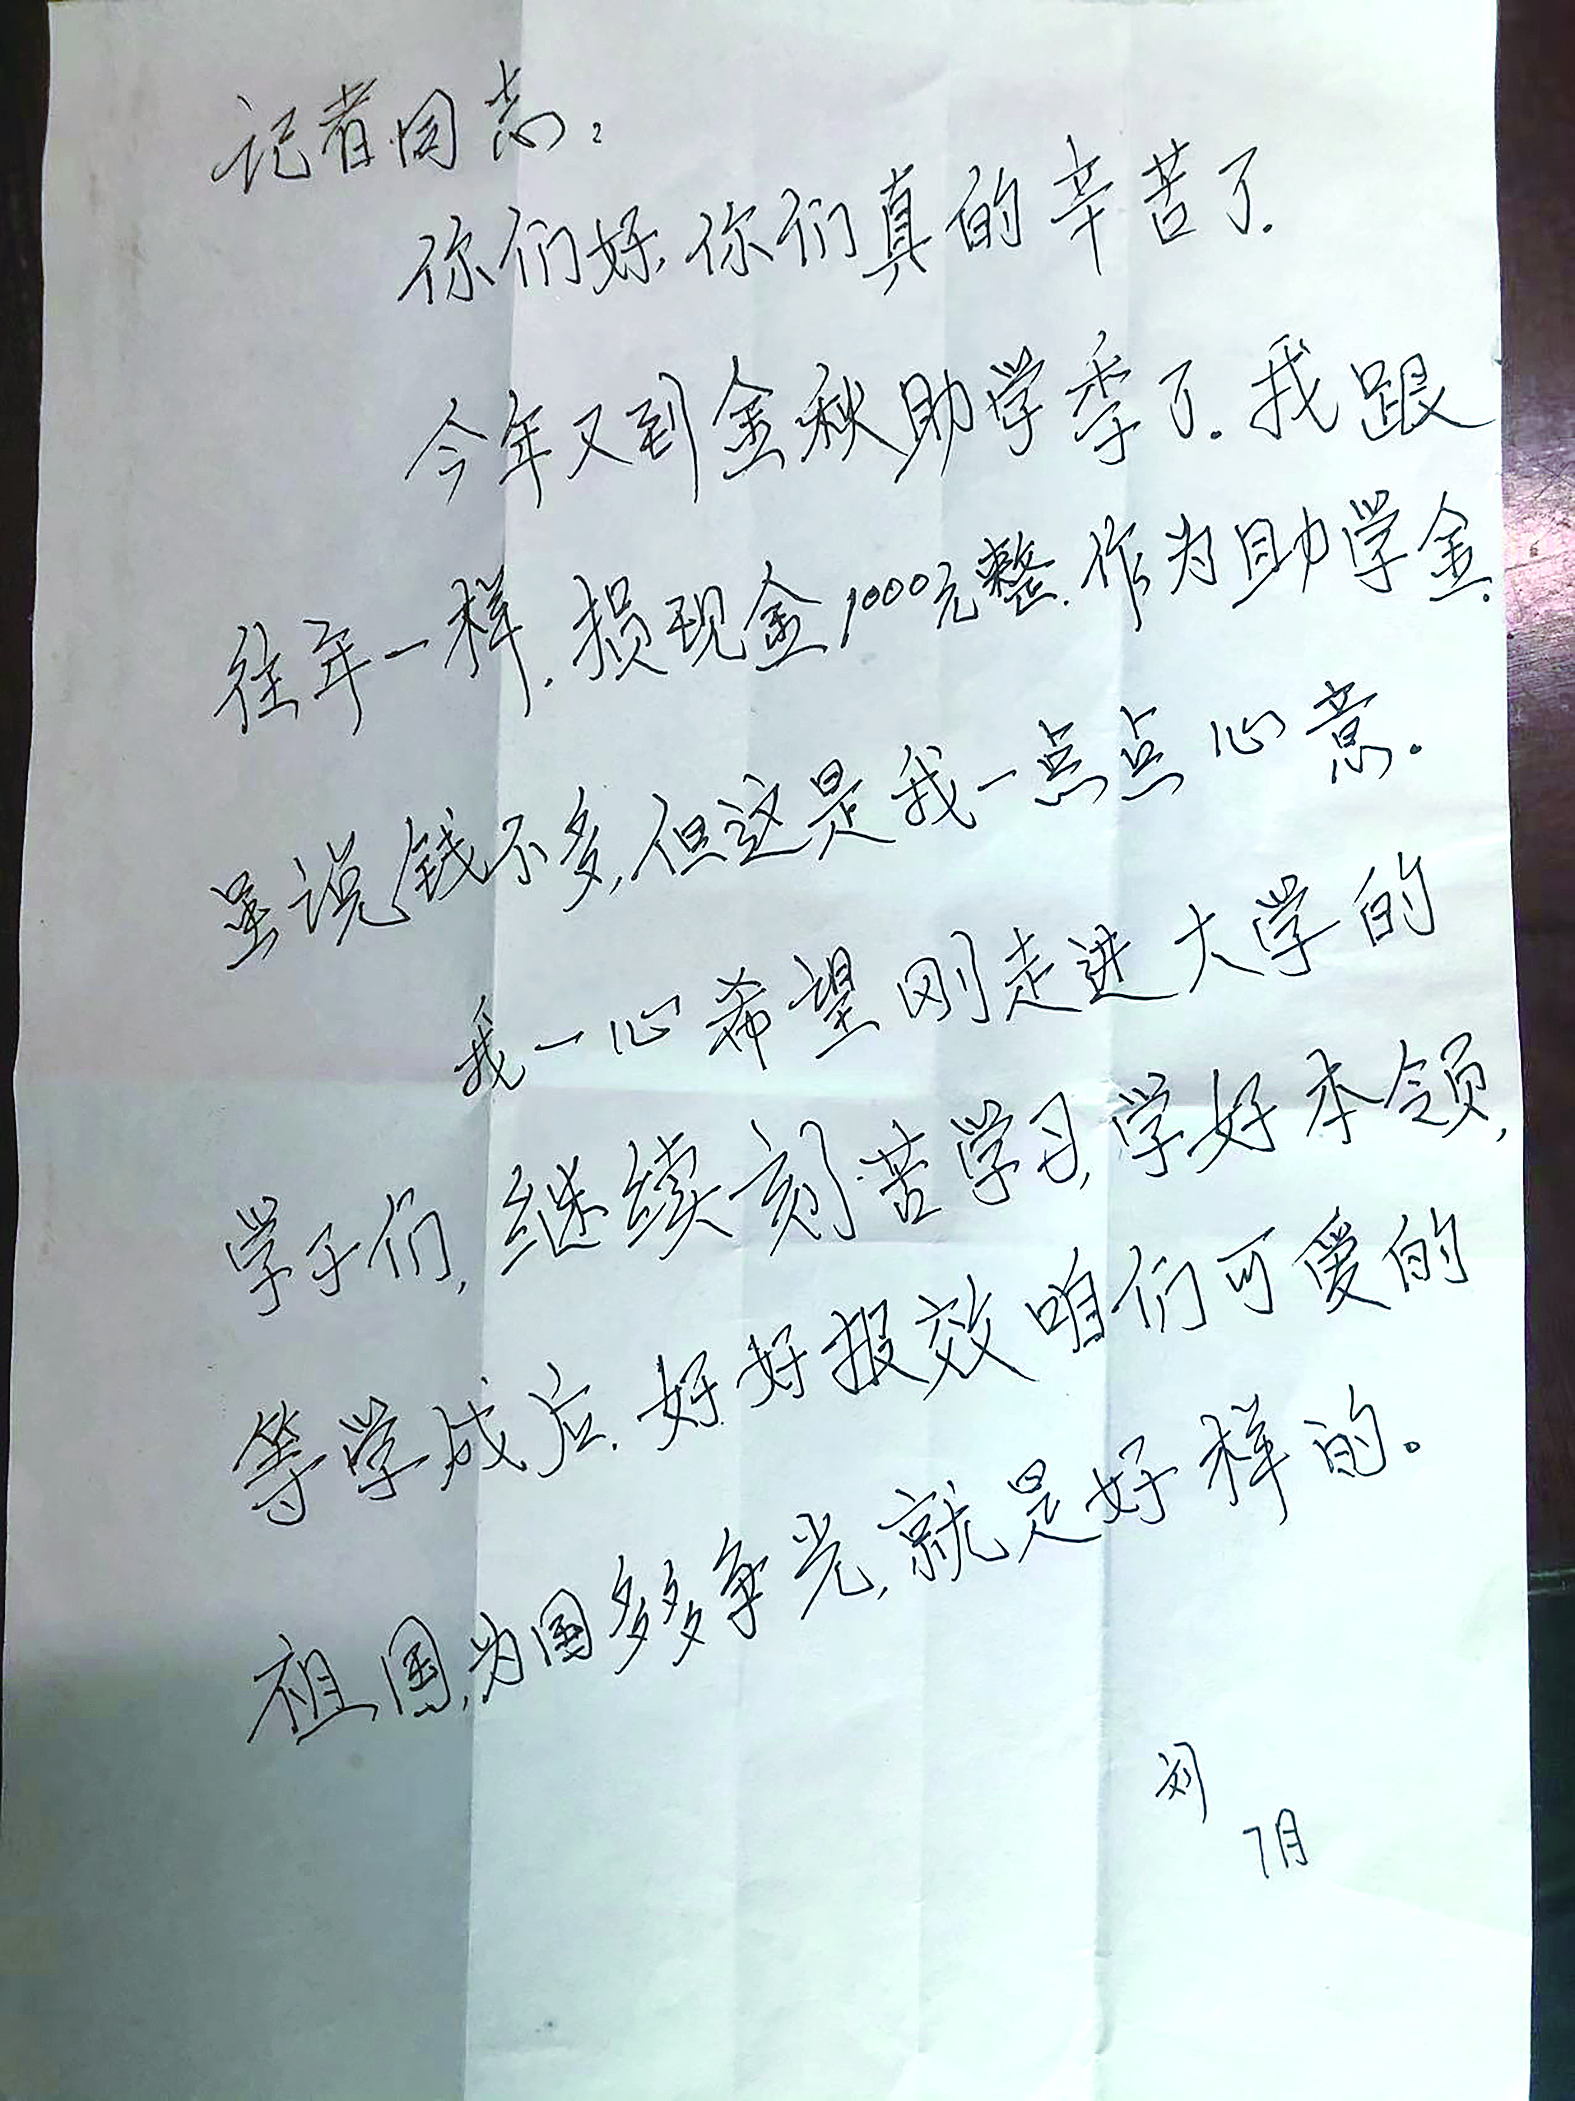 记者同志:
你们好,你们真的辛苦了.
今年又到金秋助学季了.我跟
往年一样.损现金1000元整.作为助学金.
虽说钱不多,但这是我一点点心意.
我一心希望刚走进大学的
学子们,继续刻苦学习,学好本领,
等学成后.好好报效咱们可爱的
祖国,为国多多争光,就是好样的。
刘
7月